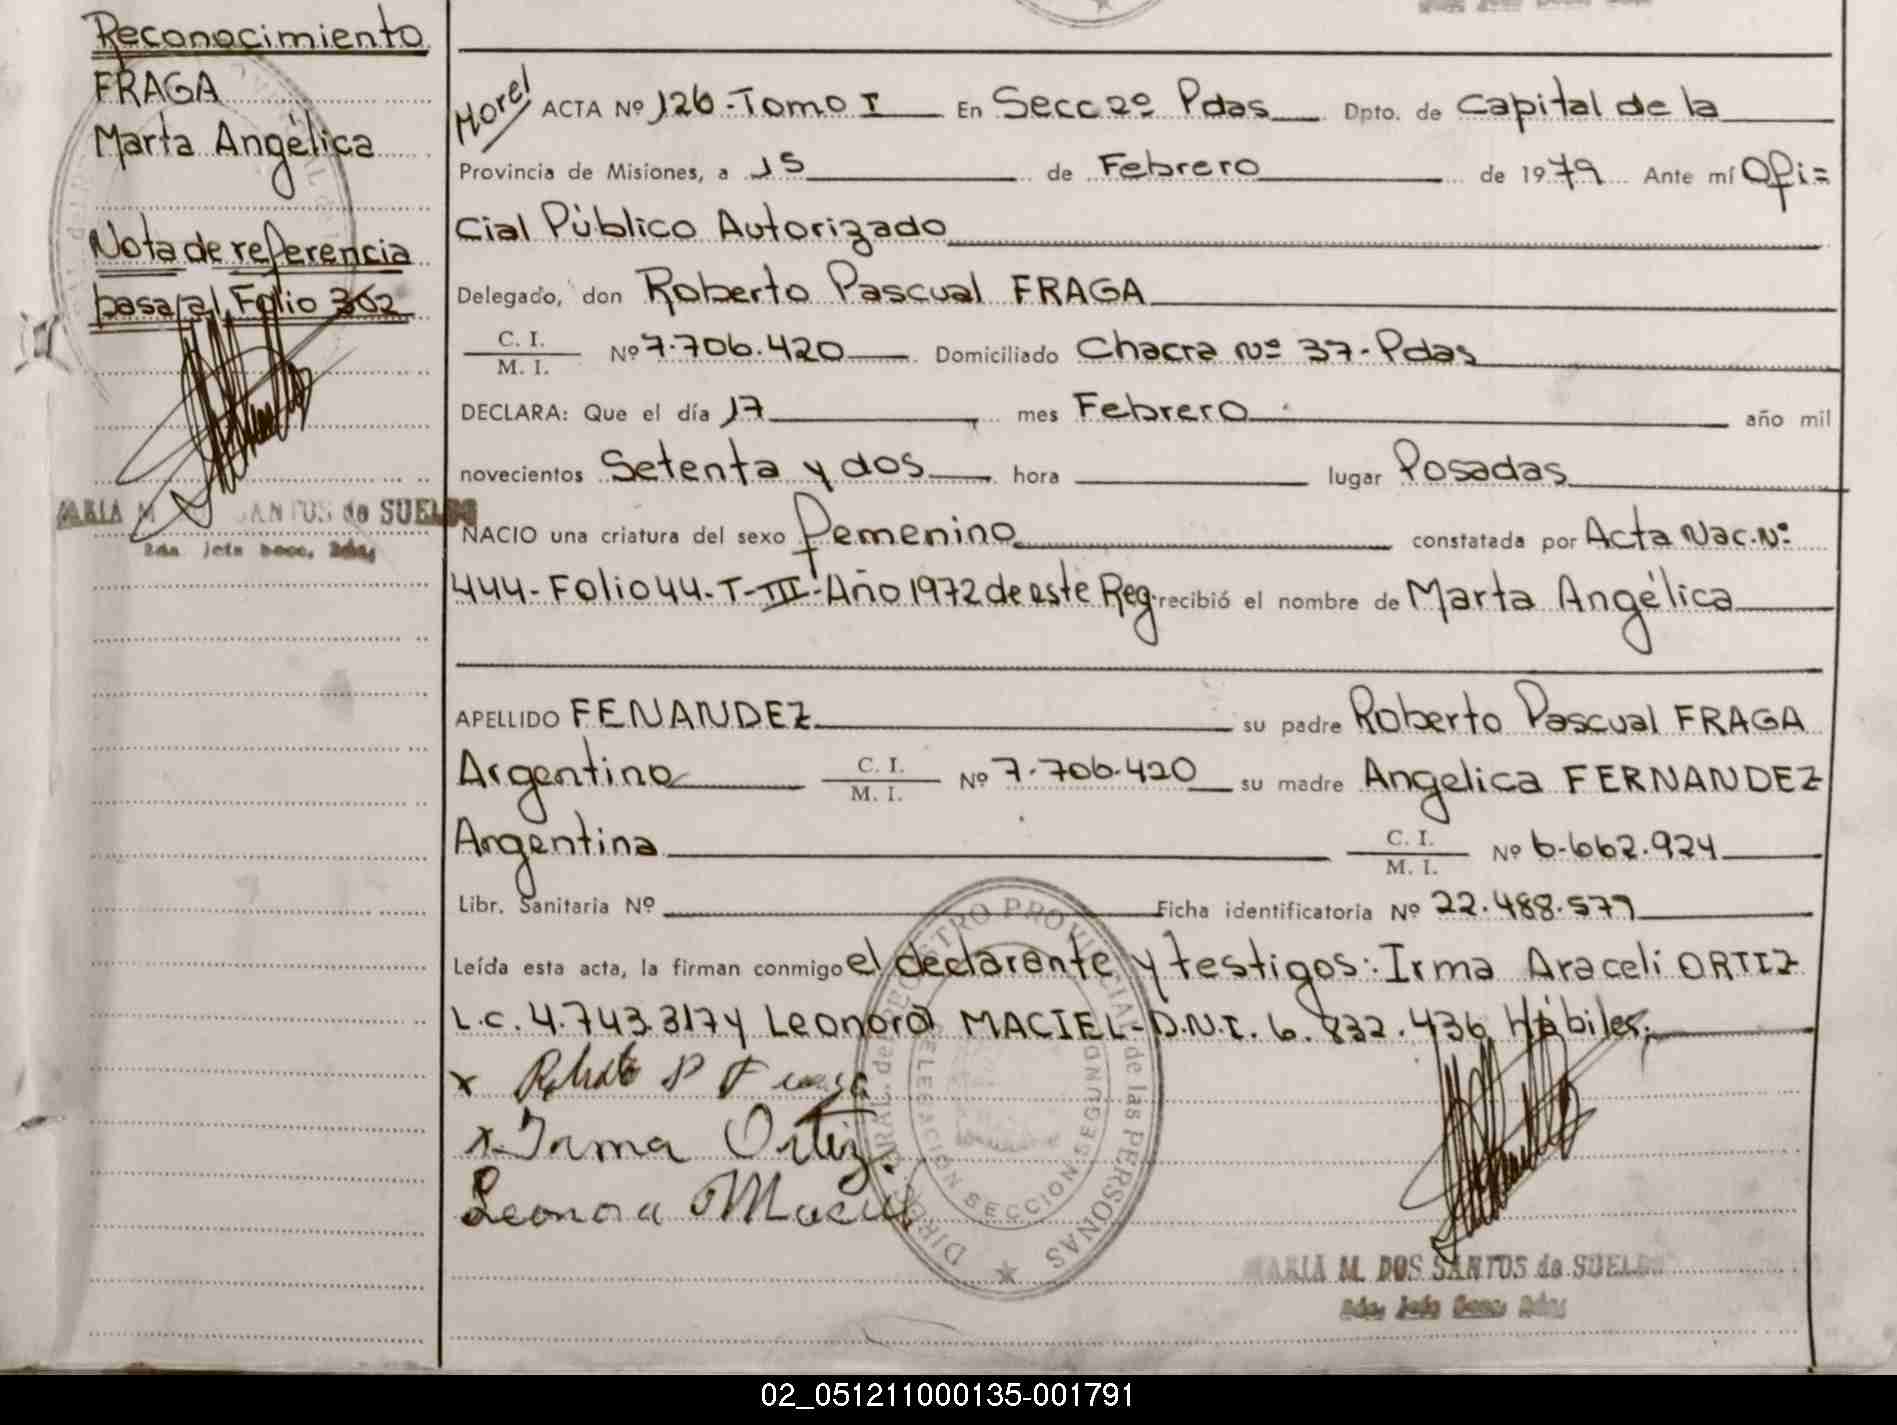 Reconocimiento
FRAGA
Marta Angélica
Nota de referencia
pasa al Folio 302
MARIA M. DOS SANTOS de SUELDO
2da. Jefa Secc. 2da.
Morel ACTA Nº 126-Tomo I En Secc 2º Pdas Dpto. de Capital de la
Provincia de Misiones, a 15 de Febrero de 1979 Ante mí Ofi=
cial Público Autorizado
Delegado, don Roberto Pascual FRAGA
C. I.
M. I. Nº 7.706.420 Domiciliado Chacra Nº 37-Pdas
DECLARA: Que el día 17 mes Febrero año mil
novecientos Setenta y dos hora lugar Posadas
NACIO una criatura del sexo femenino constatada por Acta Nac. Nº
444-Folio 44-T-III-Año 1972 de este Reg. recibió el nombre de Marta Angélica
APELLIDO FENANDEZ su padre Roberto Pascual FRAGA
Argentino C. I.
M. I. Nº 7.706.420 su madre Angelica FERNANDEZ
Argentina C. I.
M. I. Nº 6.662.924
Libr. Sanitaria Nº Ficha identificatoria Nº 22.488.579
Leída esta acta, la firman conmigo el declarante y testigos: Irma Araceli ORTIZ
L.C. 4.743.317 y Leonora MACIEL-D.N.I. 6.832.436 Hábiles.
x Roberto P Fraga
x Irma Ortiz
Leonora Maciel
REGISTRO PROVINCIAL de las PERSONAS
DELEGACION SECCION SEGUNDA
MARIA M. DOS SANTOS de SUELDO
2da. Jefa Secc. 2da.
02_051211000135-001791